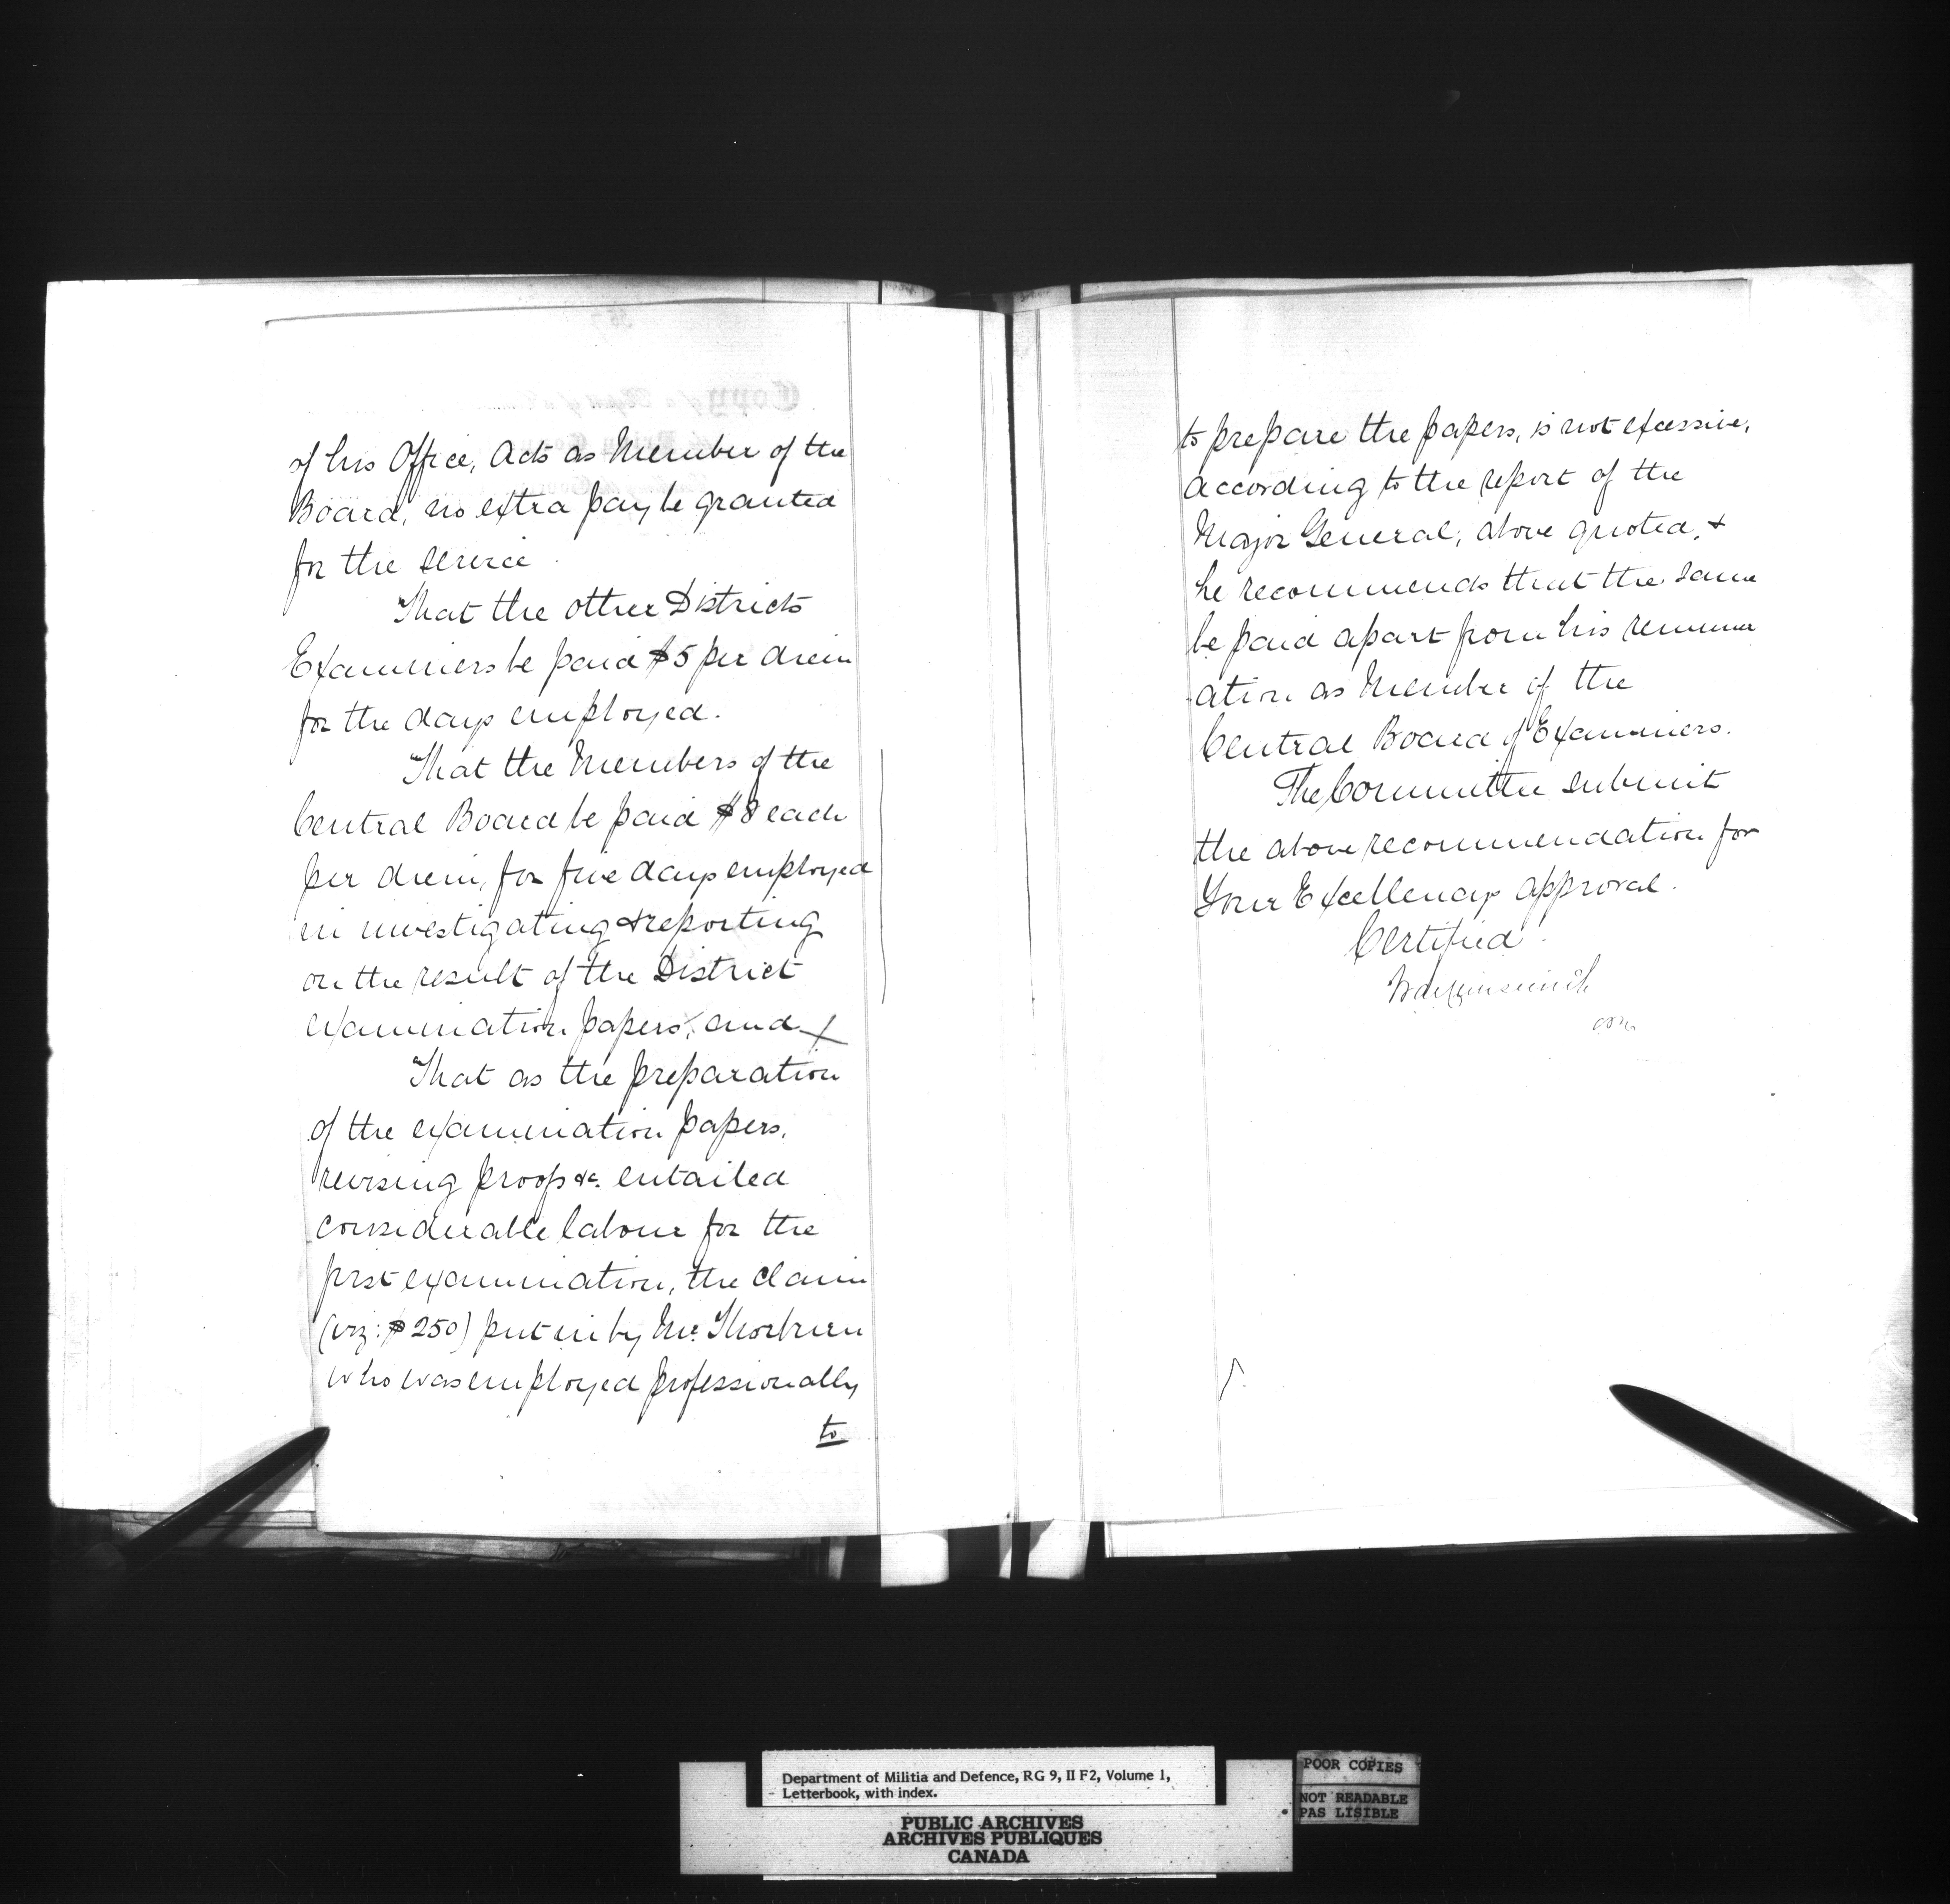 of his Office, Acts as Member of the
Board, no extra pay be granted
for the service
That the other Districts
Examiners be paid $5 per diem
for the days employed.
That the Members of the
Central Board be paid $8 each
per diem, for five days employed
in investigating & reporting
on the result of the District
examination papers, and
That as the preparation
of the examination papers,
revising proofs &c. entailed
considerable labour for the
first examination, the claim
(viz: $250) put in by Mr. Thorburn
who was employed professionally
to
to prepare the papers, is not excessive,
according to the report of the
Major General, above quoted, &
he recommends that the same
be paid apart from his remuner
-ation as Member of the
Central Board of Examiners.
The Committee submit
the above recommendation for
Your Excellencys approval.
Certified
Department of Militia and Defence, RG 9, II F2, Volume 1,
Letterbook, with index.
PUBLIC ARCHIVES
ARCHIVES PUBLIQUES
CANADA
POOR COPIES
NOT READABLE
PAS LISIBLE